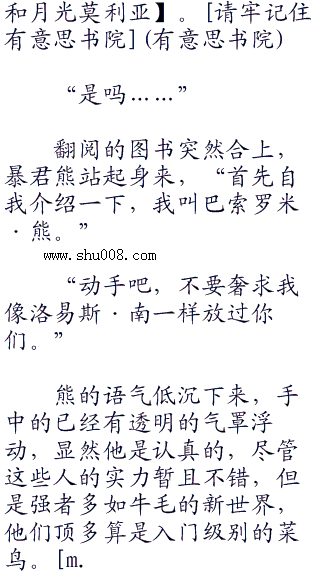 和月光莫利亚】。[请牢记住
有意思书院](有意思书院)
“是吗……”
翻阅的图书突然合上，
暴君熊站起身来，“首先自
我介绍一下，我叫巴索罗米
·熊。”
www.shu008.com
“动手吧，不要奢求我
像洛易斯·南一样放过你
们。”
熊的语气低沉下来，手
中的已经有透明的气罩浮
动，显然他是认真的，尽管
这些人的实力暂且不错，但
是强者多如牛毛的新世界，
他们顶多算是入门级别的菜
鸟。[m.